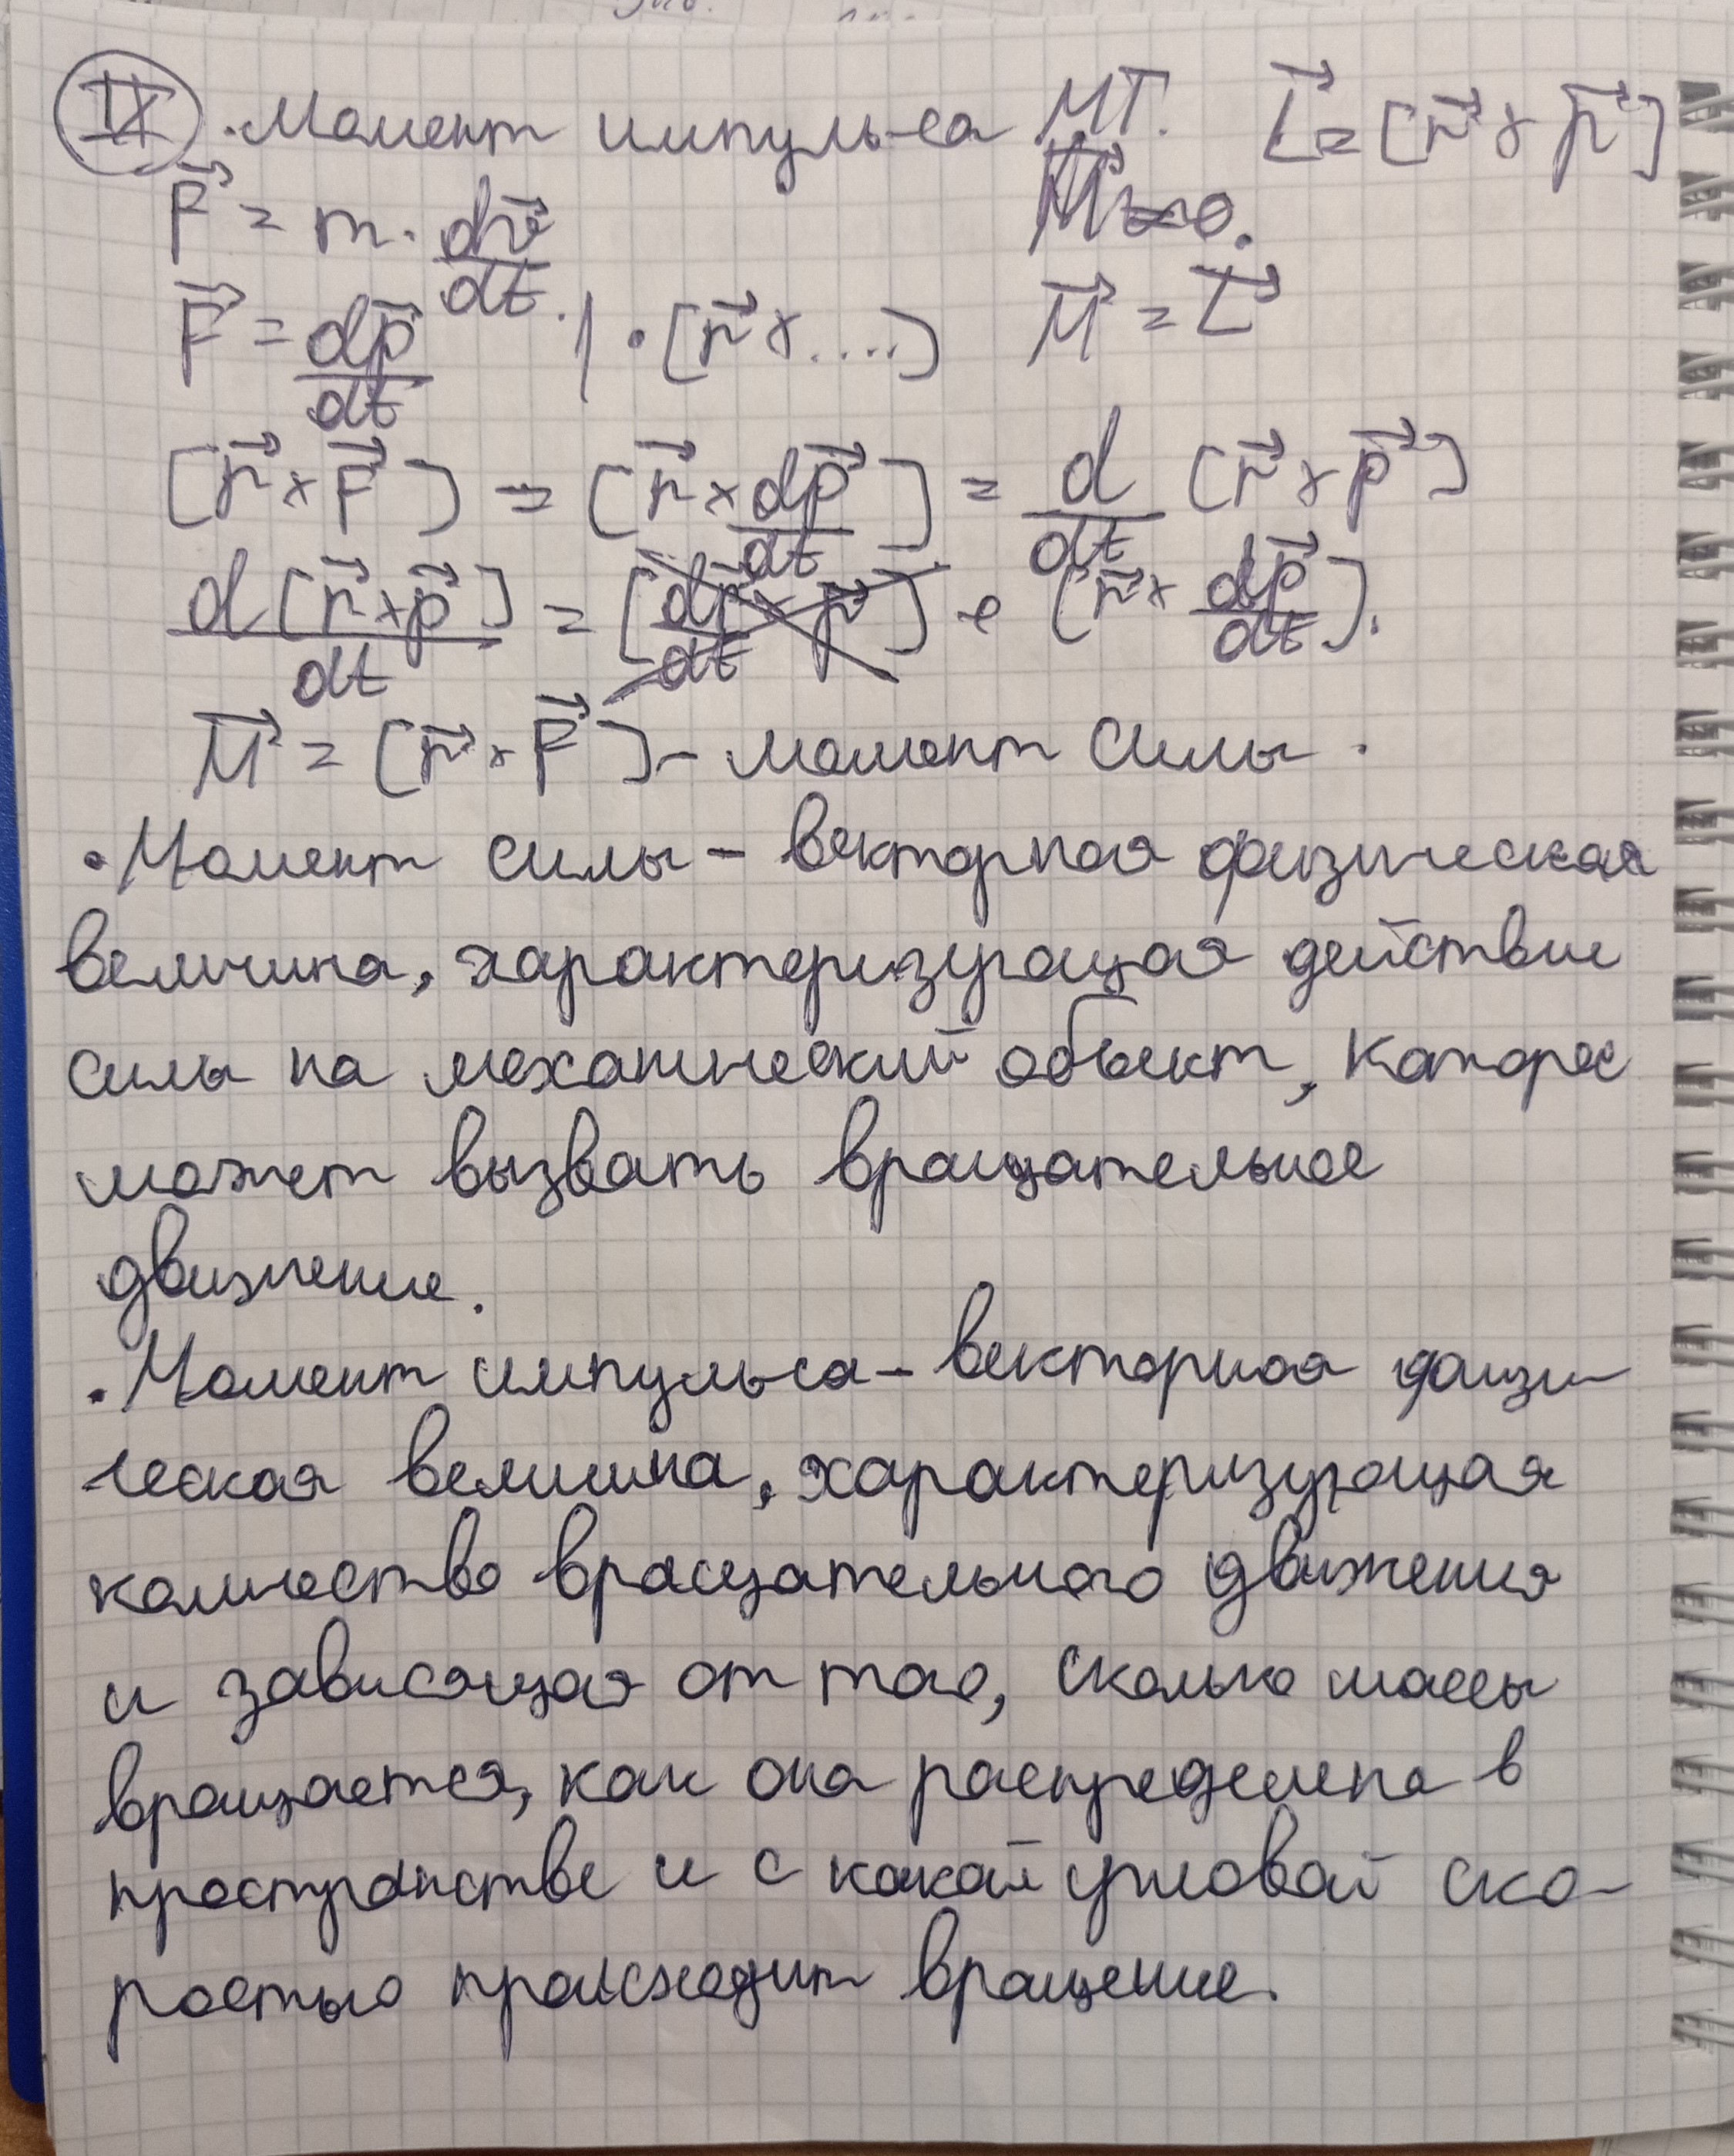 IX . Момент импульса МТ. L⃗ = [r⃗ × p⃗]
F⃗ = m · dv⃗/dt
F⃗ = dp⃗/dt | · [r⃗ × ....] M⃗ = L⃗
[r⃗ × F⃗] = [r⃗ × dp⃗/dt] = d/dt [r⃗ × p⃗]
d[r⃗ × p⃗]/dt = [dr⃗/dt × p⃗] + [r⃗ × dp⃗/dt].
M⃗ = [r⃗ × F⃗] – момент силы.
• Момент силы – векторная физическая
величина, характеризующая действие
силы на механический объект, которое
может вызвать вращательное
движение.
• Момент импульса – векторная физи-
ческая величина, характеризующая
количество вращательного движения
и зависящая от того, сколько массы
вращается, как она распределена в
пространстве и с какой угловой ско-
ростью происходит вращение.